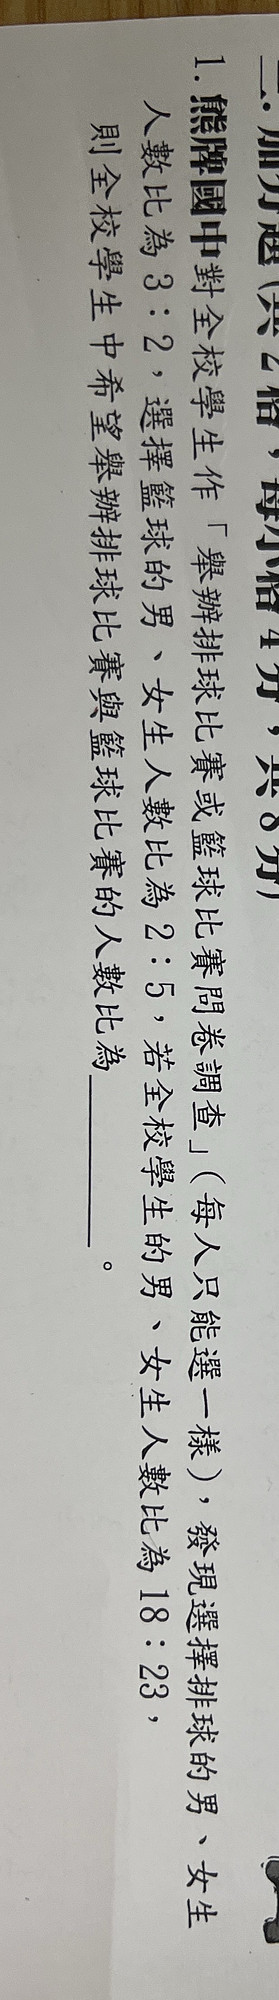 二、加分題(共2格，每小格4分，共8分)
1. 熊牌國中對全校學生作「舉辦排球比賽或籃球比賽問卷調查」(每人只能選一樣)，發現選擇排球的男、女生
人數比為 3：2，選擇籃球的男、女生人數比為 2：5，若全校學生的男、女生人數比為 18：23，
則全校學生中希望舉辦排球比賽與籃球比賽的人數比為＿＿＿＿。